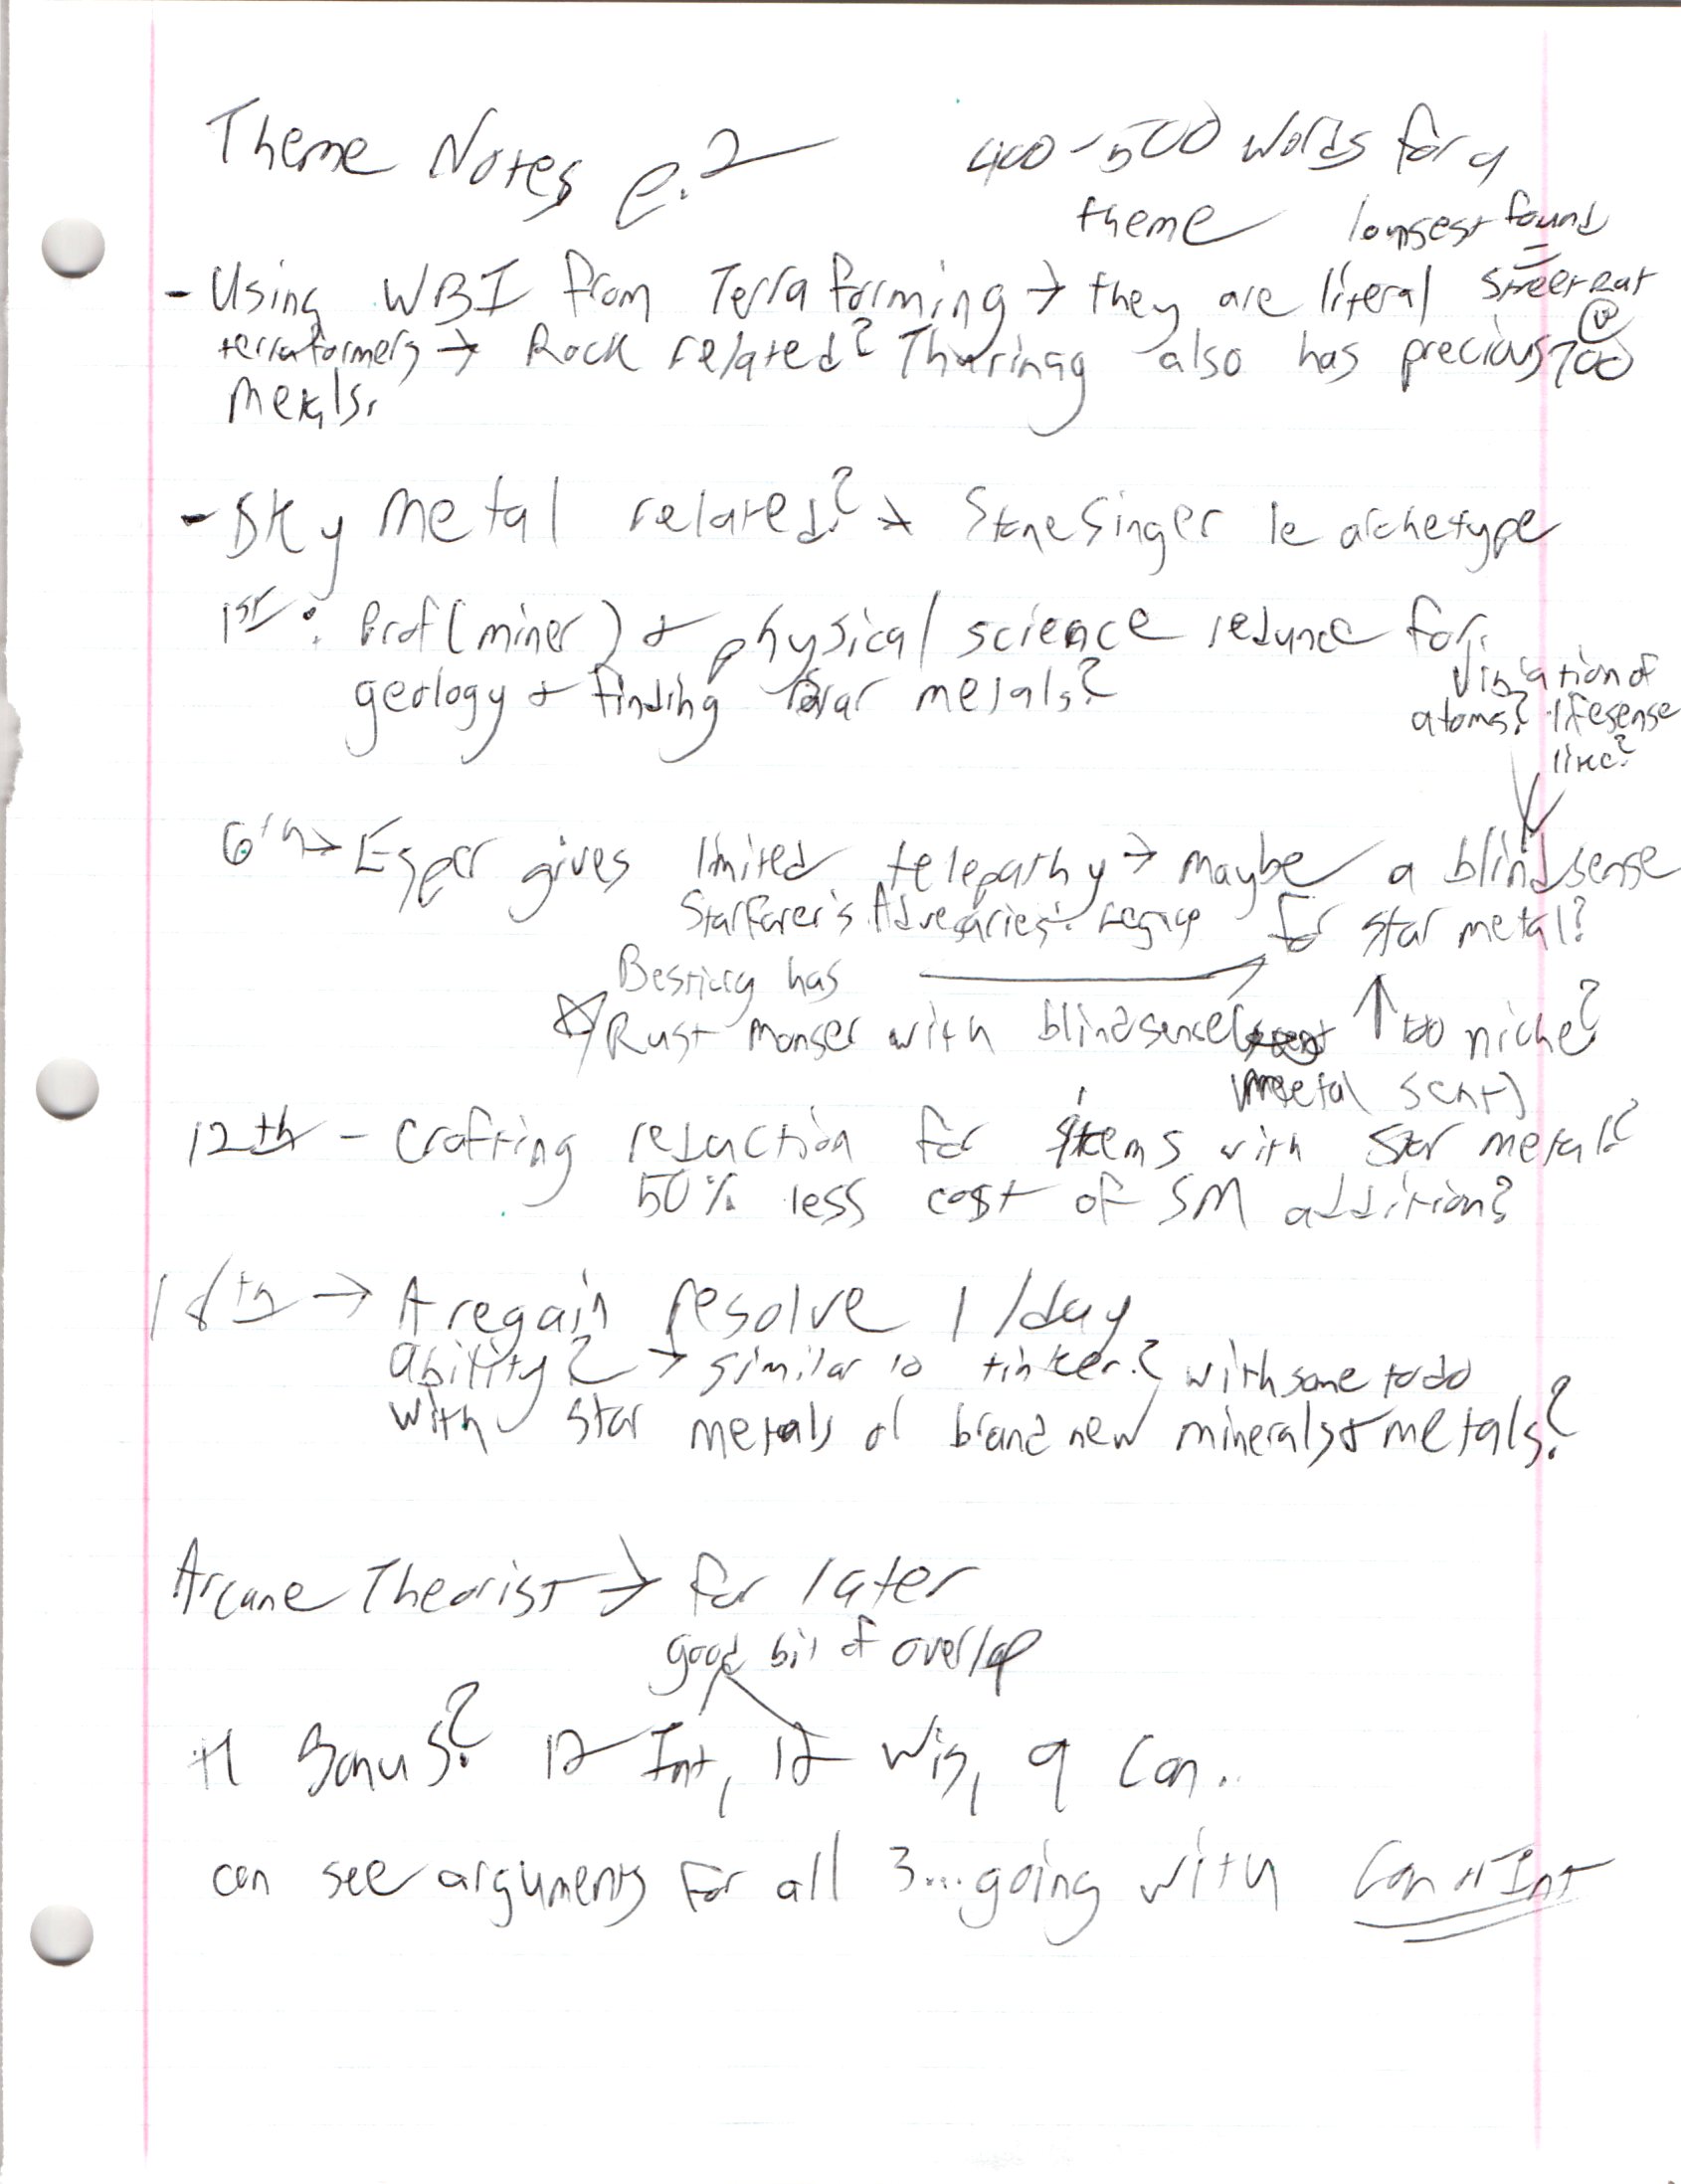 Theme Notes p.2
400-500 words for a
theme longest found
Street Rat
@
700
- Using WBI from Terraforming → they are literal
terraformers → Rock related? Thuringa also has precious
metals.
- Sky metal related? → Stone Singer 1e archetype
1st: Prof(miner) + physical science reduce for
geology + finding star metals?
atoms? lifesense
like?
6th → Esper gives limited telepathy → maybe a blindsense
for star metal?
Starfarer's Adversaries: Legacy
Bestiary has
☆ Rust Monser with blindsense(
metal scent)
↑ too niche?
12th - Crafting reduction for items with star metal?
50% less cost of SM addition?
18th → A regain resolve 1/day
ability? → similar to tinker? with some todo
with star metals or brand new minerals + metals?
Arcane Theorist → for later
good bit of overlap
+1 Bonus? 12 Int, 12 Wis, 9 Con..
can see arguments for all 3... going with Con or Int